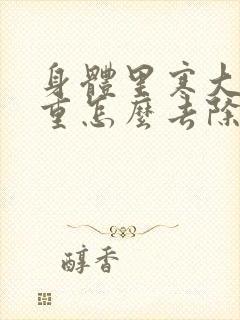 身體里寒大
重怎麼去除
醇香